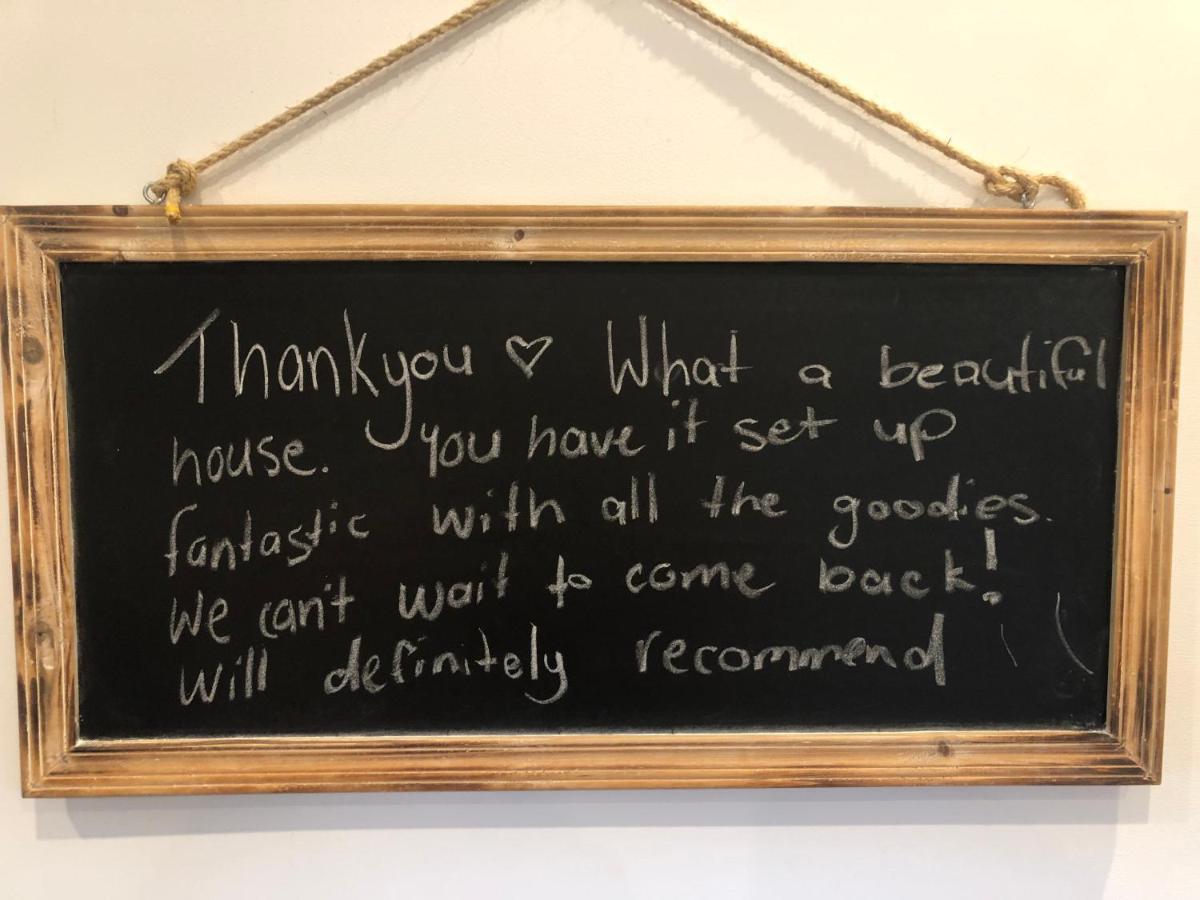 Thankyou ♡ What a beautiful
house. You have it set up
fantastic with all the goodies.
We can't wait to come back!
Will definitely recommend